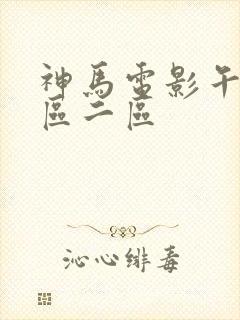 神馬電影午
區二區
沁心緋毒